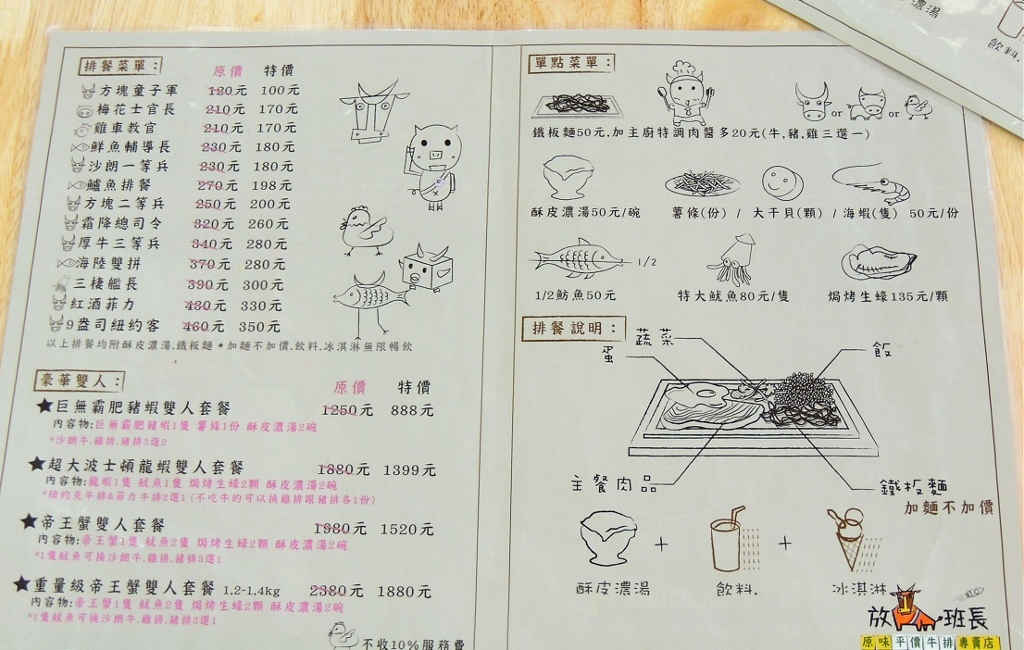 排餐菜單：
原價 特價
方塊童子軍 120元 100元
梅花士官長 210元 170元
雞車教官 210元 170元
鮮魚輔導長 230元 180元
沙朗一等兵 230元 180元
鱸魚排餐 270元 198元
方塊二等兵 250元 200元
霜降總司令 320元 260元
厚牛三等兵 340元 280元
海陸雙拼 370元 280元
三棲艦長 390元 300元
紅酒菲力 430元 330元
9盎司紐約客 460元 350元
以上排餐均附酥皮濃湯.鐵板麵•加麵不加價.飲料.冰淇淋無限暢飲
豪華雙人：
原價 特價
★巨無霸肥豬蝦雙人套餐 1250元 888元
內容物:巨無霸肥豬蝦1隻 薯條1份 酥皮濃湯2碗
*沙朗牛.雞排.豬排3選2
★超大波士頓龍蝦雙人套餐 1880元 1399元
內容物:龍蝦1隻 魷魚1隻 焗烤生蠔2顆 酥皮濃湯2碗
*紐約克牛排&菲力牛排2選1(不吃牛的可以換雞排跟豬排各1份)
★帝王蟹雙人套餐 1980元 1520元
內容物:帝王蟹1隻 魷魚2隻 焗烤生蠔2顆 酥皮濃湯2碗
*1隻魷魚可換沙朗牛.雞排.豬排3選1
★重量級帝王蟹雙人套餐 1.2-1.4kg 2380元 1880元
內容物:帝王蟹1隻 魷魚2隻 焗烤生蠔2顆 酥皮濃湯2碗
*1隻魷魚可換沙朗牛.雞排.豬排3選1
不收10%服務費
單點菜單：
or or
鐵板麵50元,加主廚特調肉醬多20元(牛,豬,雞三選一)
酥皮濃湯50元/碗 薯條(份) / 大干貝(顆) / 海蝦(隻) 50元/份
1/2
1/2魴魚50元 特大魷魚80元/隻 焗烤生蠔135元/顆
排餐說明：
蔬菜
蛋 飯
主餐肉品 鐵板麵
加麵不加價
+ +
酥皮濃湯 飲料. 冰淇淋
放牛班長
原味平價牛排專賣店
濃湯
飲料.